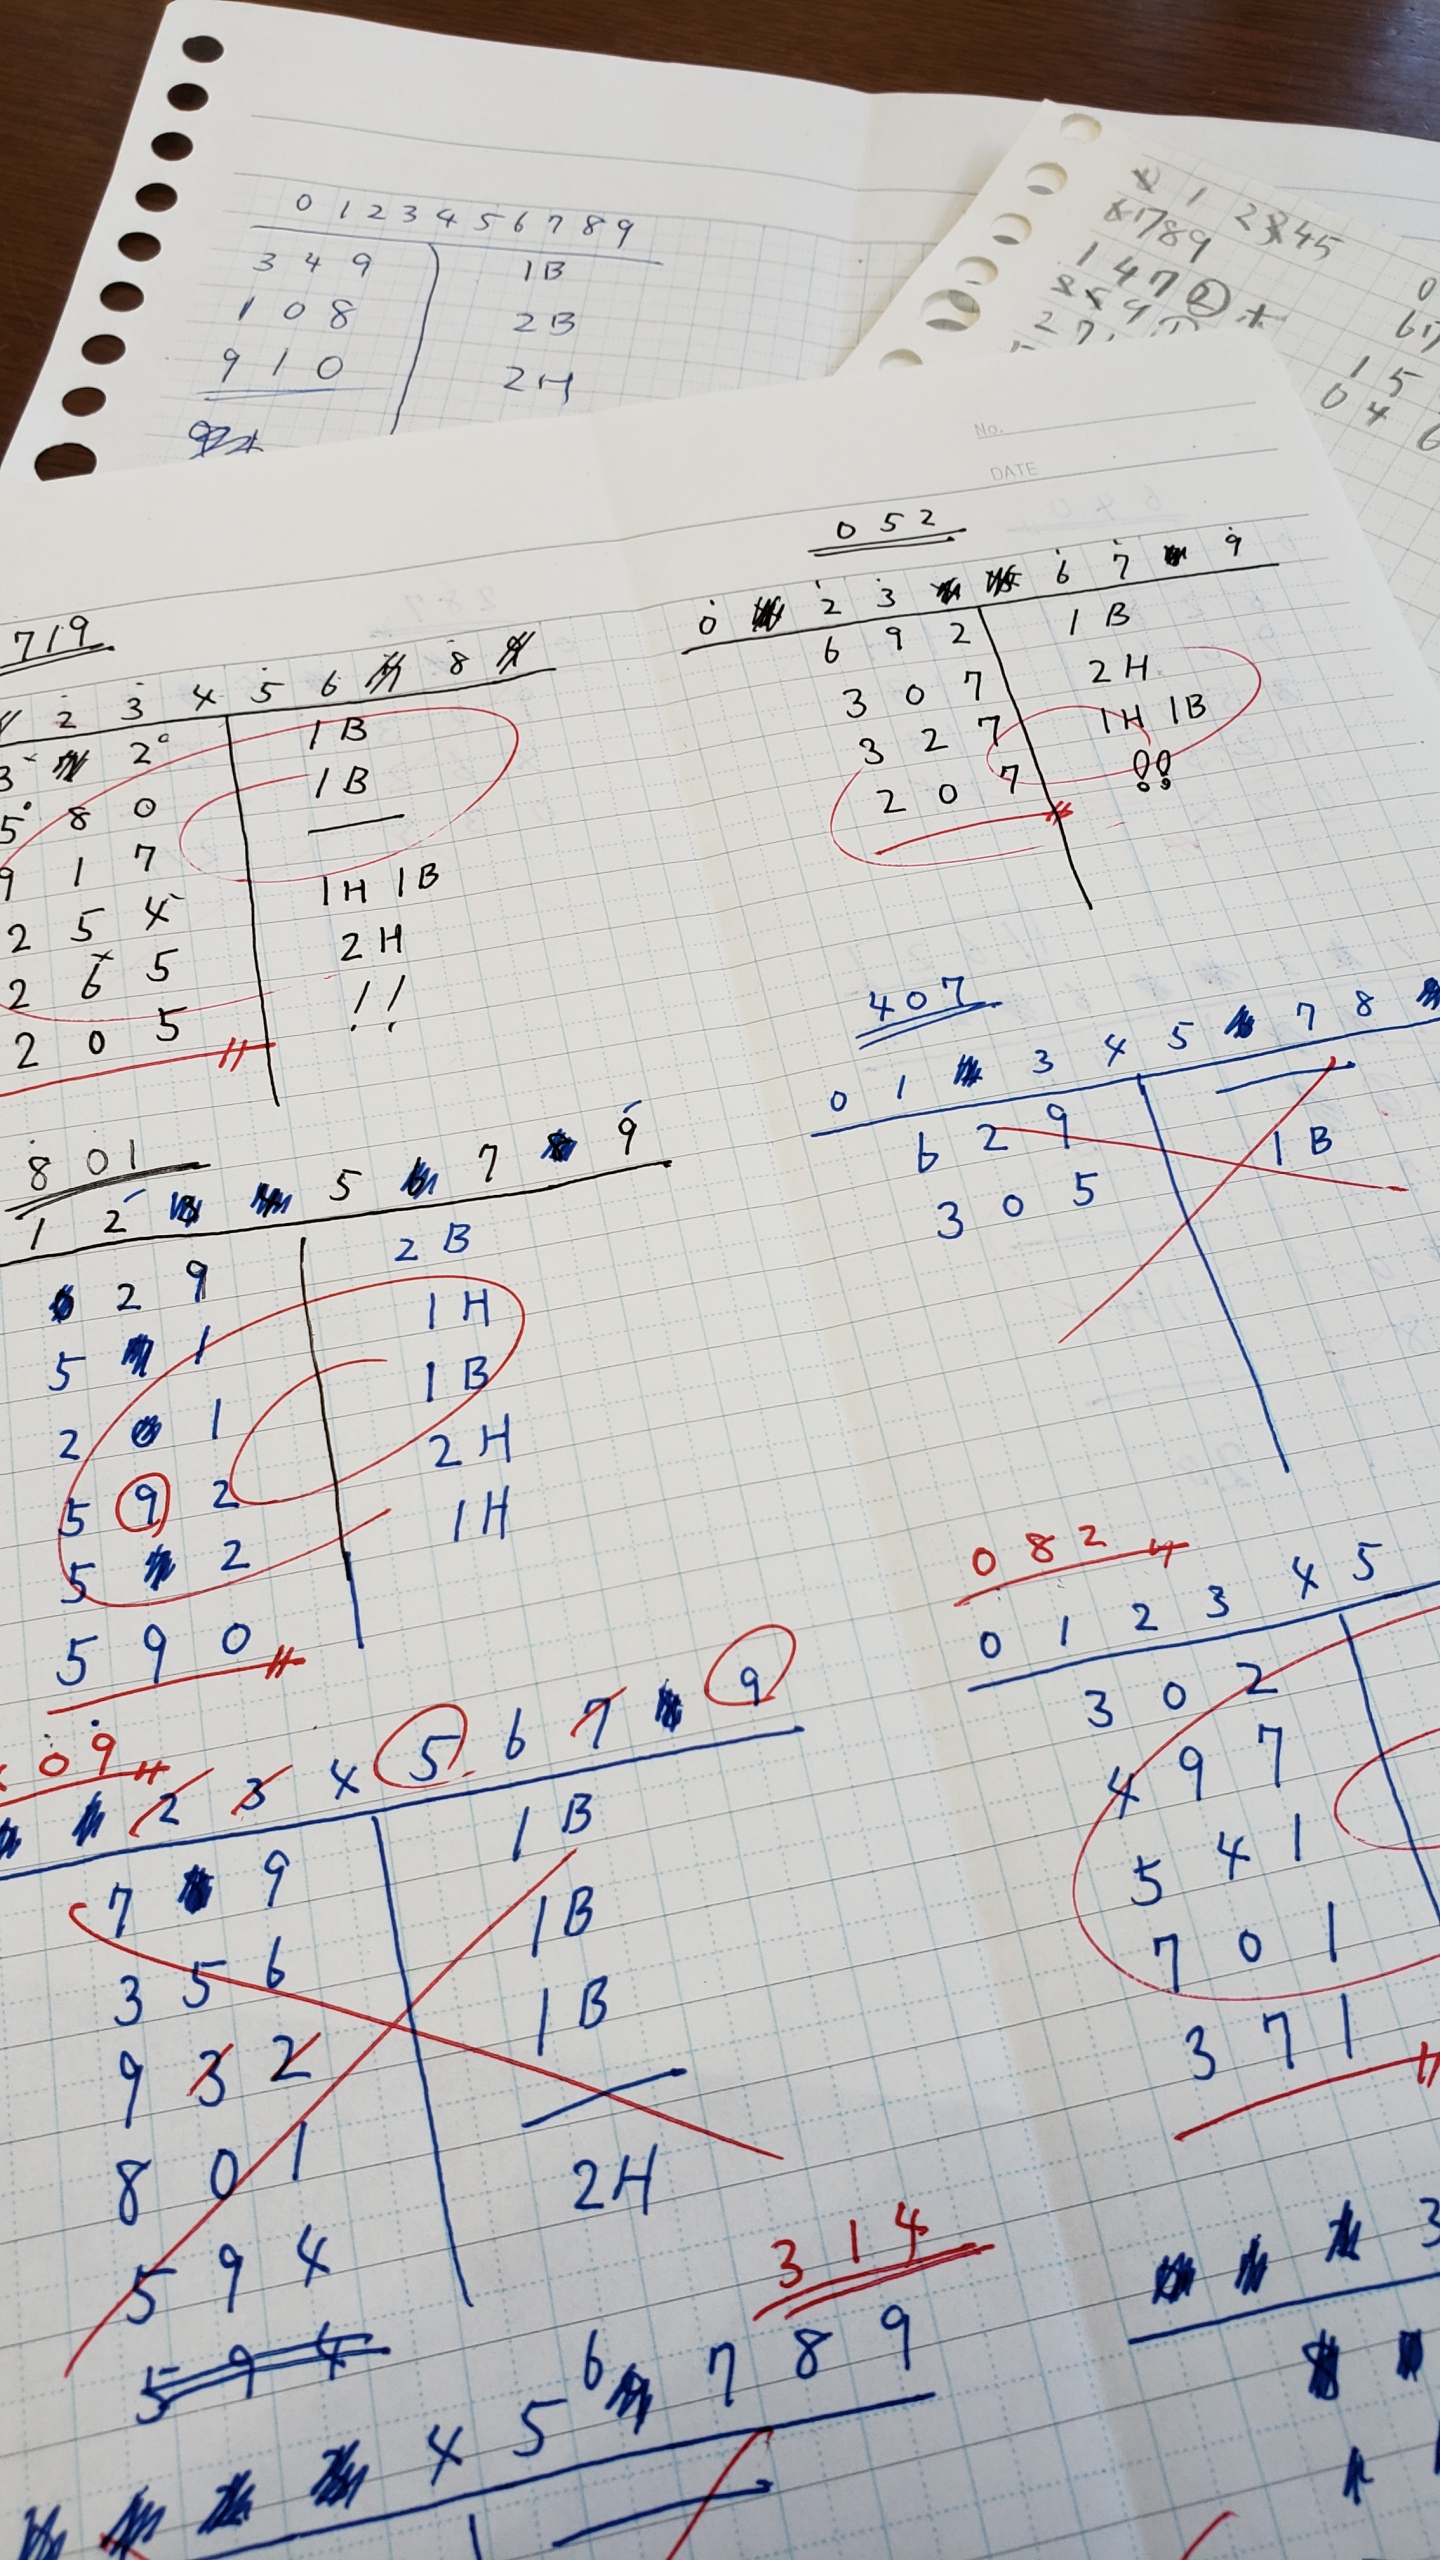 0 1 2 3 4 5 6 7 8 9
3 4 9 1B
1 0 8 2B
9 1 0 2H
1 2 3 4 5
7 8 9
1 4 7 2
No.
DATE
719
2 3 4 5 6 8
3 2 1B
5 8 0 1B
9 1 7 —
2 5 4 1H 1B
2 6 5 2H
2 0 5 !!
052
0 2 3 6 7 9
6 9 2 1B
3 0 7 2H
3 2 7 1H 1B
2 0 7 !!
407
0 1 3 4 5 7 8
6 2 9 —
3 0 5 1B
801
1 2 5 7 9
2 9 2B
5 1 1H
2 1 1B
5 9 2 2H
5 2 1H
5 9 0
0 9
2 3 4 5 6 7 9
7 9 1B
3 5 6 1B
9 3 2 1B
8 0 1 —
5 9 4 2H
5 9 4
082
0 1 2 3 4 5
3 0 2
4 9 7
5 4 1
7 0 1
3 7 1
314
4 5 6 7 8 9
3